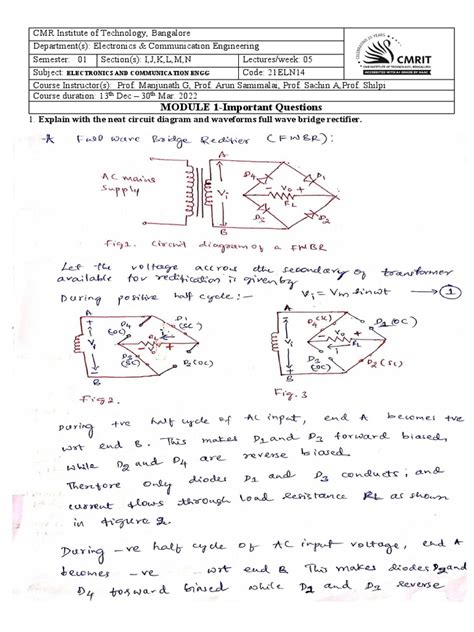 CMR Institute of Technology, Bangalore
Department(s): Electronics & Communication Engineering
Semester: 01 Section(s): I,J,K,L,M,N Lectures/week: 05
Subject: ELECTRONICS AND COMMUNICATION ENGG Code: 21ELN14
Course Instructor(s): Prof. Manjunath G, Prof. Arun Samimalai, Prof. Sachin A, Prof. Shilpi
Course duration: 13th Dec – 30th Mar. 2022
CMRIT
MODULE 1-Important Questions
1. Explain with the neat circuit diagram and waveforms full wave bridge rectifier.
Full Wave Bridge Rectifier (FWBR):
A
AC mains
Supply
Vi
D4
D1
Vo
RL
D3
D2
B
Fig1. Circuit diagram of a FWBR
Let the voltage accross the secondary of transformer
available for rectification is given by
During positive half cycle:- Vi = Vm sinwt → 1
A
Vi
D4
(OC)
D1
(SC)
RL
D3
(SC)
(OC)
B
Fig2.
A
Vi
D4
(SC)
(OC)
Vo
(OC)
D2 (SC)
B
Fig. 3
During +ve half cycle of AC input, end A becomes +ve
wrt end B. This makes D1 and D3 forward biased,
while D2 and D4 are reverse biased.
Therefore only diodes D1 and D3 conducts, and
current flows through load resistance RL as shown
in figure 2.
During -ve half cycle of AC input voltage, end A
becomes -ve wrt end B This makes diodes D2 and
D4 forward biased while D1 and D3 reverse